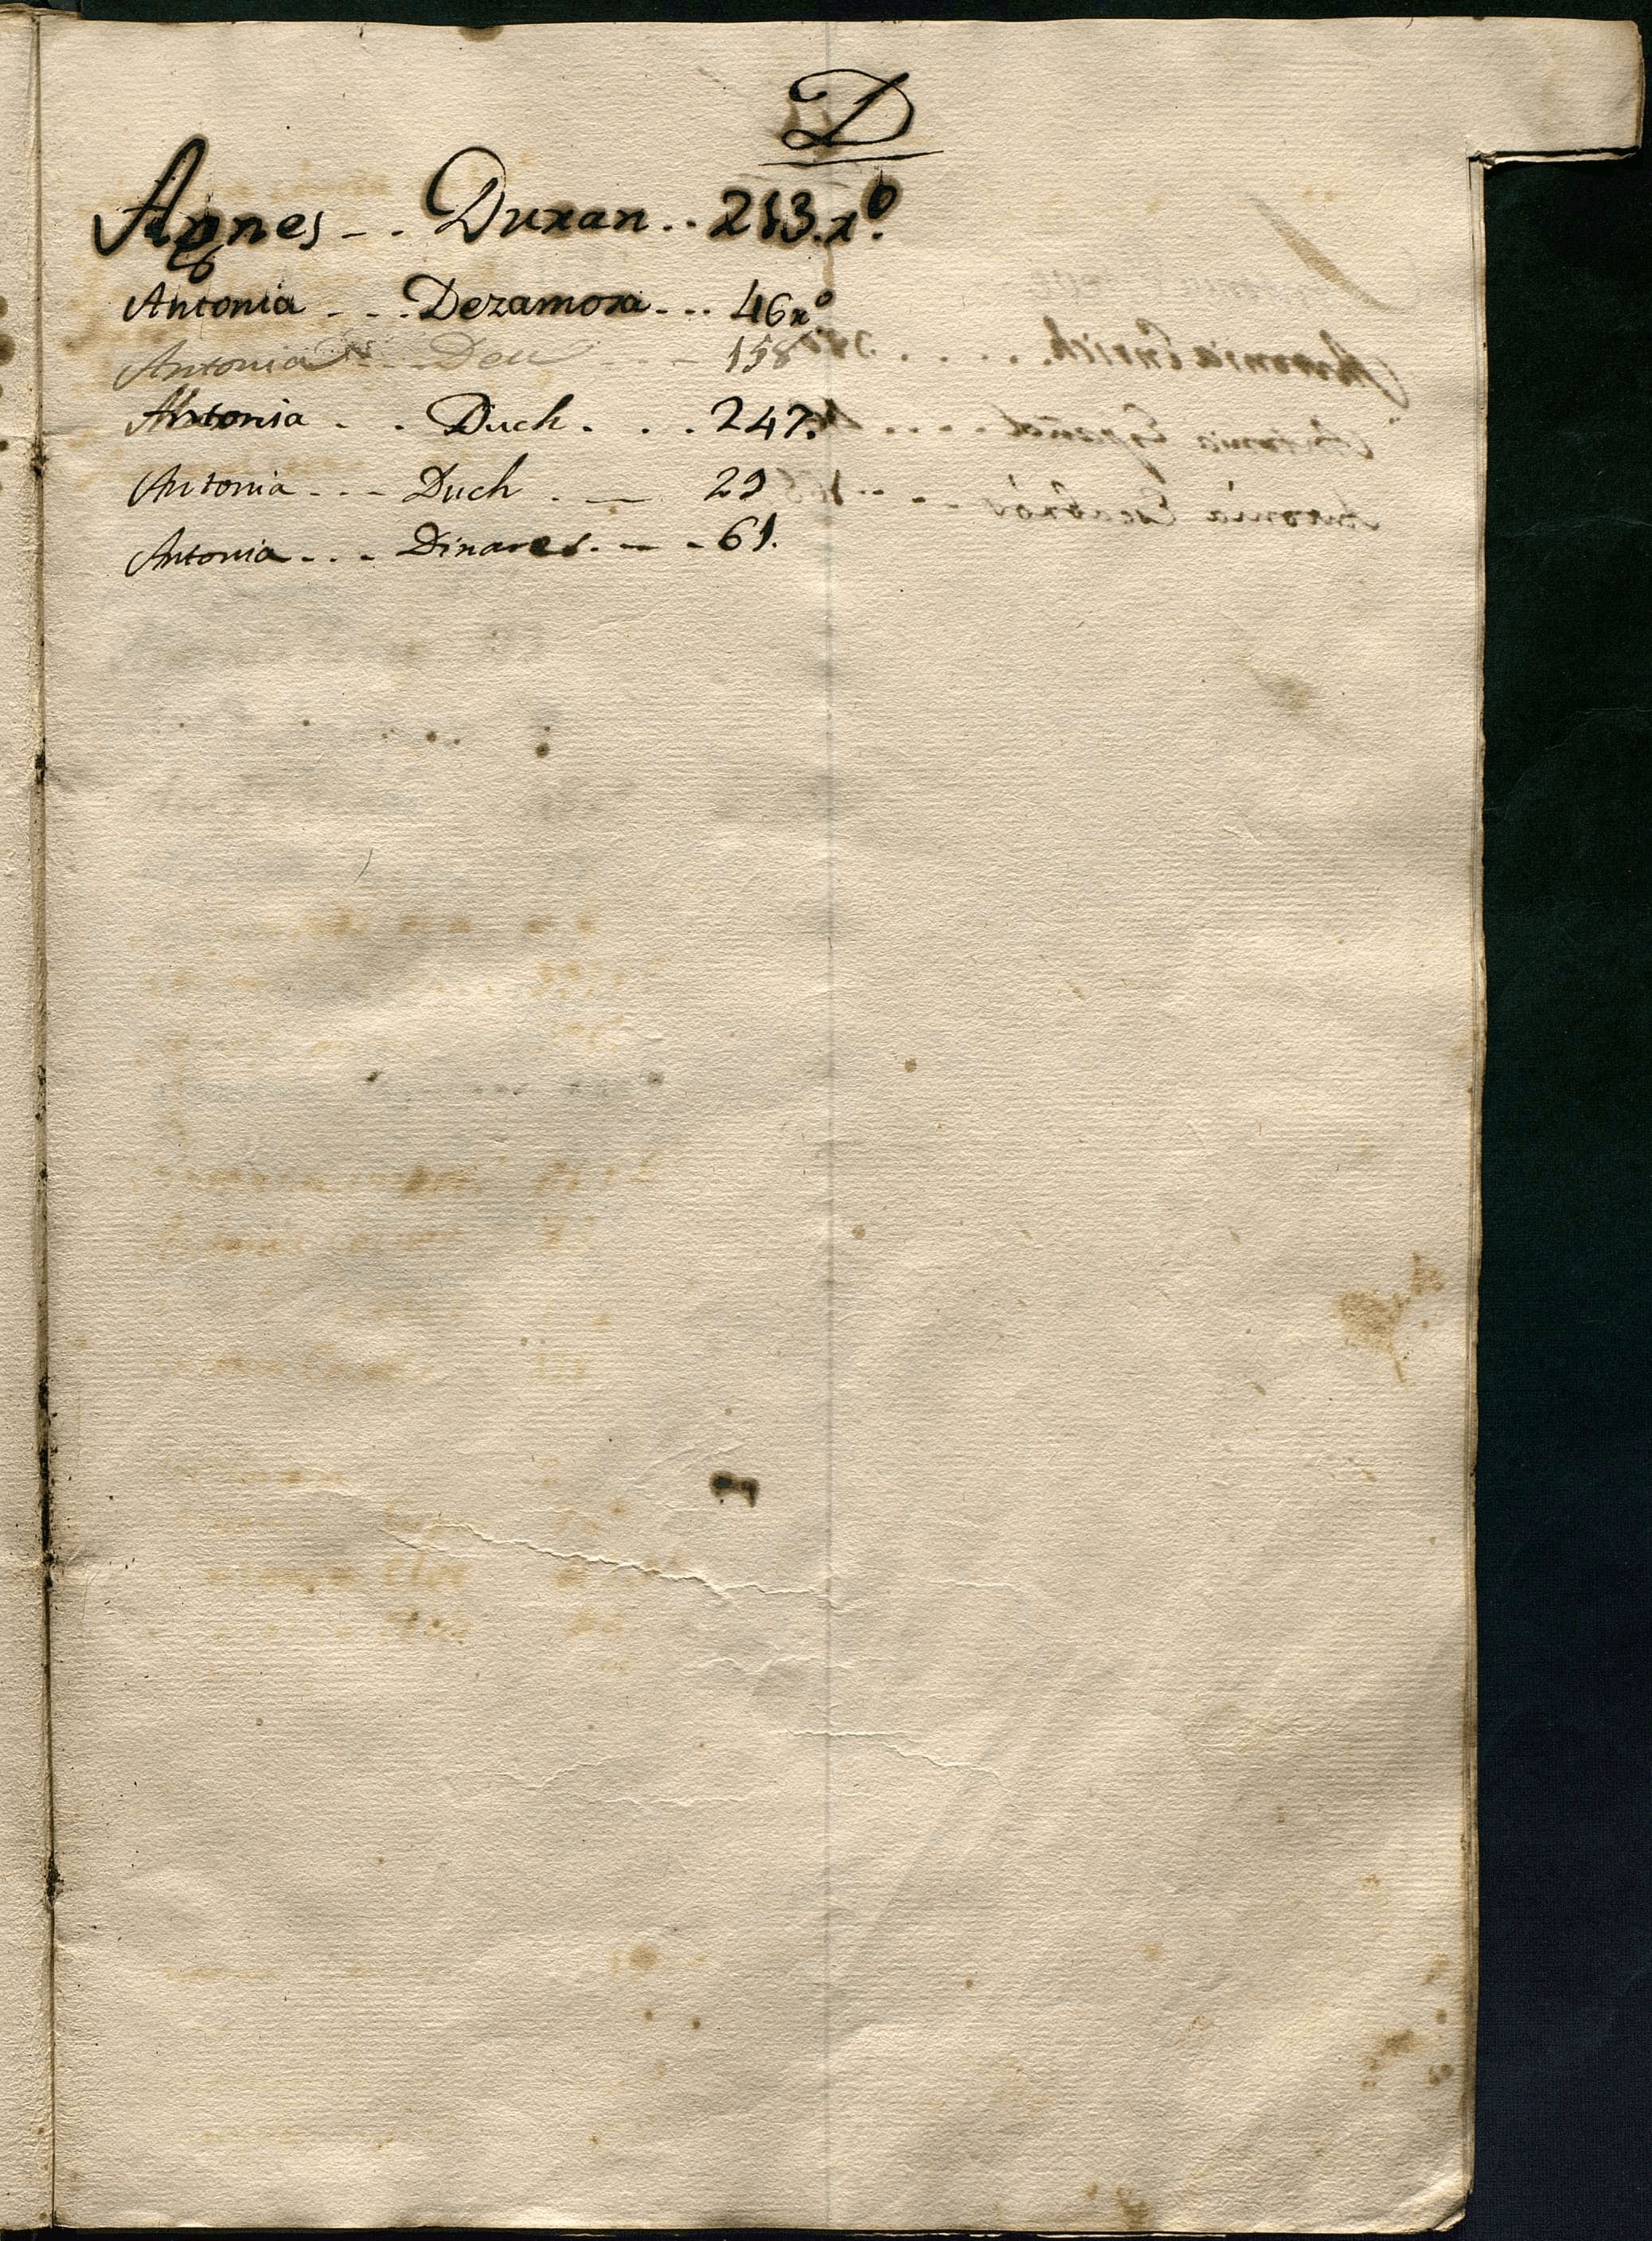 D
Agnes - . Duran . . 213. rº.
Antonia - . . Dezamora - . . 46 rº
Antonia - - - Deu - - 158
Antonia . . Duch . . . 247.
Antonia - . - Duch . — 29
Antonia - . . - Dinares. - - - 61.